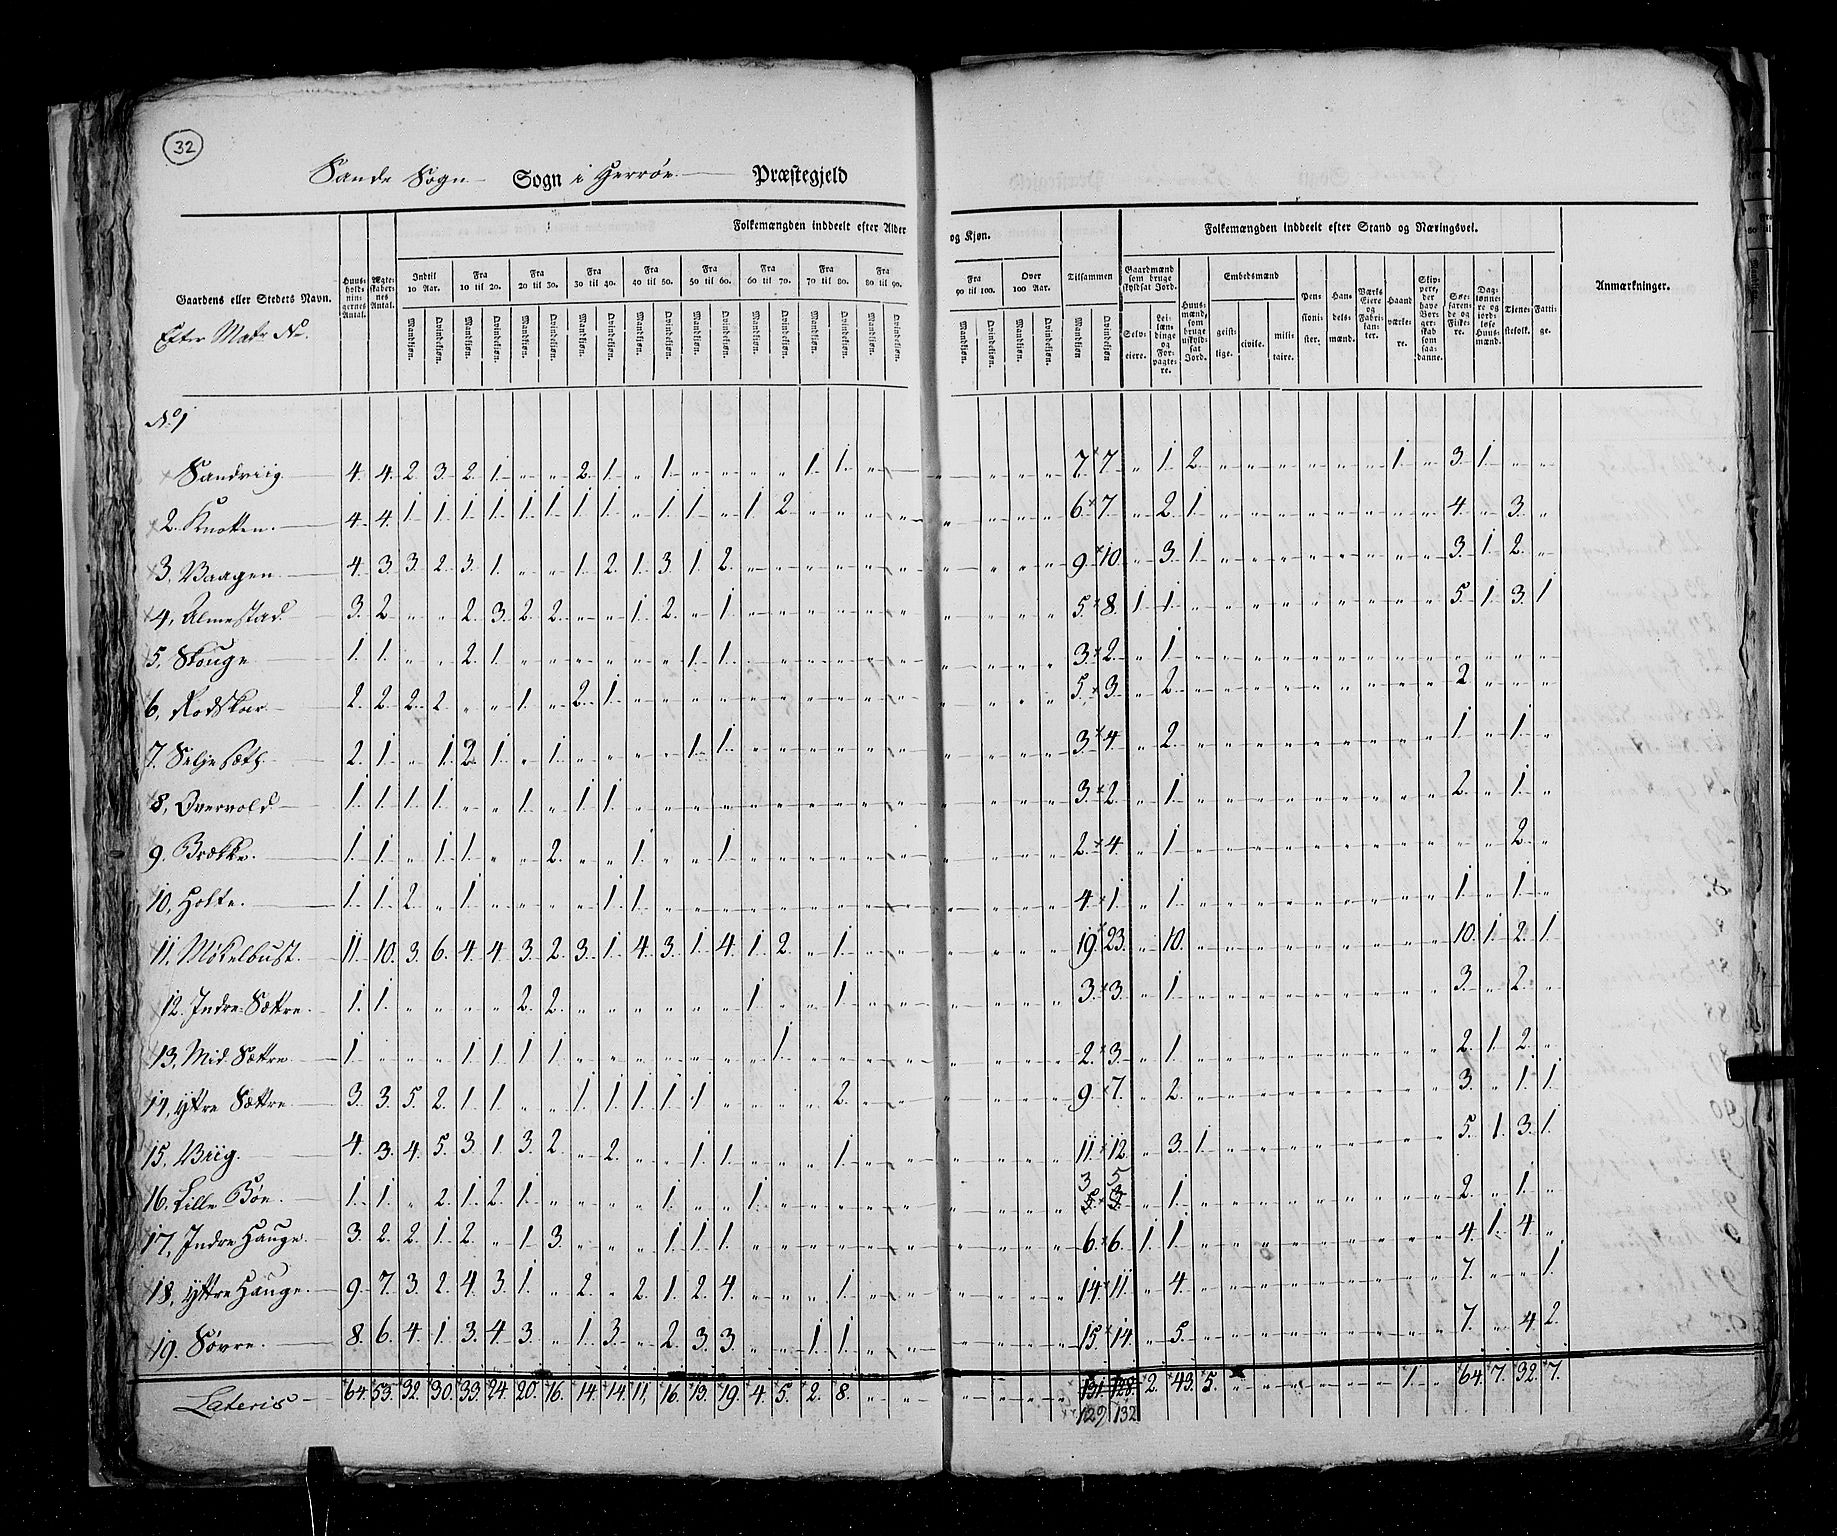 32
Sande Sogn Sogn i Herrøe Præstegjeld
Folkemængden inddeelt efter Alder og Kjøn. Folkemængden inddeelt efter Stand og Næringsvei.
Gaardens eller Stedets Navn. Huusholdningernes Antal. Ægteskabernes Antal. Indtil 10 Aar. Fra 10 til 20. Fra 20 til 30. Fra 30 til 40. Fra 40 til 50. Fra 50 til 60. Fra 60 til 70. Fra 70 til 80. Fra 80 til 90. Fra 90 til 100. Over 100 Aar. Tilsammen Gaardmænd som bruge skyldsat Jord. Huusmænd, som bruge uskyldsat Jord. Embedsmænd Pensionister. Handelsmænd. Værks Eiere og Fabrikanter. Haandværkere. Skippere, der have Borgerskab som saadanne. Søefarende og Fiskere. Daglønnere og jordløse Huusmænd. Tjenestefolk. Fattige. Anmærkninger.
Efter Matr No.
Mandkjøn. Qvindekjøn. Mandkjøn. Qvindekjøn. Mandkjøn. Qvindekjøn. Mandkjøn. Qvindekjøn. Mandkjøn. Qvindekjøn. Mandkjøn. Qvindekjøn. Mandkjøn. Qvindekjøn. Mandkjøn. Qvindekjøn. Mandkjøn. Qvindekjøn. Mandkjøn. Qvindekjøn. Mandkjøn. Qvindekjøn. Mandkjøn Qvindekjøn Selveiere. Leilændinge og Forpagtere. geistlige. civile. militaire.
No 1
Sandviig 4. 4. 2. 3. 2. 1. " " 2. 1. " 1. " " " " 1. 1. " " " " " " 7. 7. " 1. 2. " " " " " " 1. " 3. 1. " "
2. Knotten. 4. 4. 1. 1. 1. 1. 1. 1. 1. 1. " 1. 1. " 1. 2. " " " " " " " " 6. 7. " 2. 1. " " " " " " " " 4. " 3. "
3. Vaagen. 4. 3. 3. 2. 3. 1. " " 1. 2. 1. 3. 1. 2. " " " " " " " " " " 9. 10. " 3. 1. " " " " " " " " 3. 1. 2. "
4. Almestad 3. 2. " " 2. 3. 2. 2. " " 1. 2. " 1. " " " " " " " " " " 5. 8. 1. 1. " " " " " " " " " 5. 1. 3. 1
5. Skouge 1. 1. " " 2. 1. " " " " " " 1. 1. " " " " " " " " " " 3. 2. " 1. " " " " " " " " " " " " "
6. Rødskar 2. 2. 2. 2. " " 1. " 2. 1. " " " " " " " " " " " " " " 5. 3. " 2. " " " " " " " " " 2 " " "
7. Seljesæth 2. 1. " 1. 2. 1. " 1. " " " " 1. 1. " " " " " " " " " " 3. 4. " 2. " " " " " " " " " 1. " 1. "
8. Overvold 1. 1. 1. 1. " " 1. " 1. 1. " " " " " " " " " " " " " " 3. 2. " 1. " " " " " " " " " 2. " 1. "
9. Brække. 1. 1. " 1. 1. " " 2. " " 1. " " 1. " " " " " " " " " " 2. 4. " 1. " " " " " " " " " " " 2. "
10. Holte. 1. 1. 2. " 1. " " " " 1. 1. " " " " " " " " " " " " " 4. 1. " 1. " " " " " " " " " 1. " 1. "
11. Møkelbust. 11. 10. 3. 6. 4. 4. 3. 2. 3. 1. 4. 3. 1. 4. 1. 2. " 1. " " " " " " 19. 23. " 10. " " " " " " " " " 10. 1. 2. 1.
12. Indre Sættre. 1. 1. " " " " 2. 2. " " " " " " 1. " " 1. " " " " " " 3. 3. " 1. " " " " " " " " " 3. " 2. "
13. Mid Sættre 1. " " " 1. 1. 1. 1. " " " " " " " 1. " " " " " " " " 2. 3. " 1. " " " " " " " " " 2. 1. 2. "
14. Yttre Sættre 3. 3. 5. 2. 1. 1. " " 1. 1. 1. 1. 1. " " " " 2. " " " " " " 9. 7. " 2. " " " " " " " " " 3. " 1. 1
15. Viig. 4. 3. 4. 5. 3. 1. 3. 2. " 2. " " 1. 1. " " " 1. " " " " " " 11. 12. " 3. 1. " " " " " " " " 5. 1. 3. 1.
3. 5
16. Lille Bøe. 1. 1. " 2. 1. 2. 1. " " " " 1. " " 1. " " " " " " " " " 5. 3. " 1. " " " " " " " " " 2. " 1. "
17. Indre Hauge. 3. 2. 2. 1. 2. " 1. 3. " " " 1. 1. 1. " " " " " " " " " " 6. 6. 1. 1. " " " " " " " " " 4. 1. 4. "
18. Yttre Hauge. 9. 7. 3. 2. 4. 3. 1. " 2. " 2. 1. 2. 4. " " " 1. " " " " " " 14. 11. " 4. " " " " " " " " " 7. " " 1.
19. Søvre. 8. 6. 4. 1. 3. 4. 3. " 1. 3. " 2. 3. 3. " " 1. 1. " " " " " " 15. 14. " 5. " " " " " " " " " 7. " 4. 2.
Lateris 64. 53. 32. 30. 33. 24. 20. 16. 14. 14. 11. 16. 13. 19. 4. 5. 2. 8. " " " " " " 131. 128. 2. 43. 5. " " " " " " 1. " 64. 7. 32. 7.
129 132